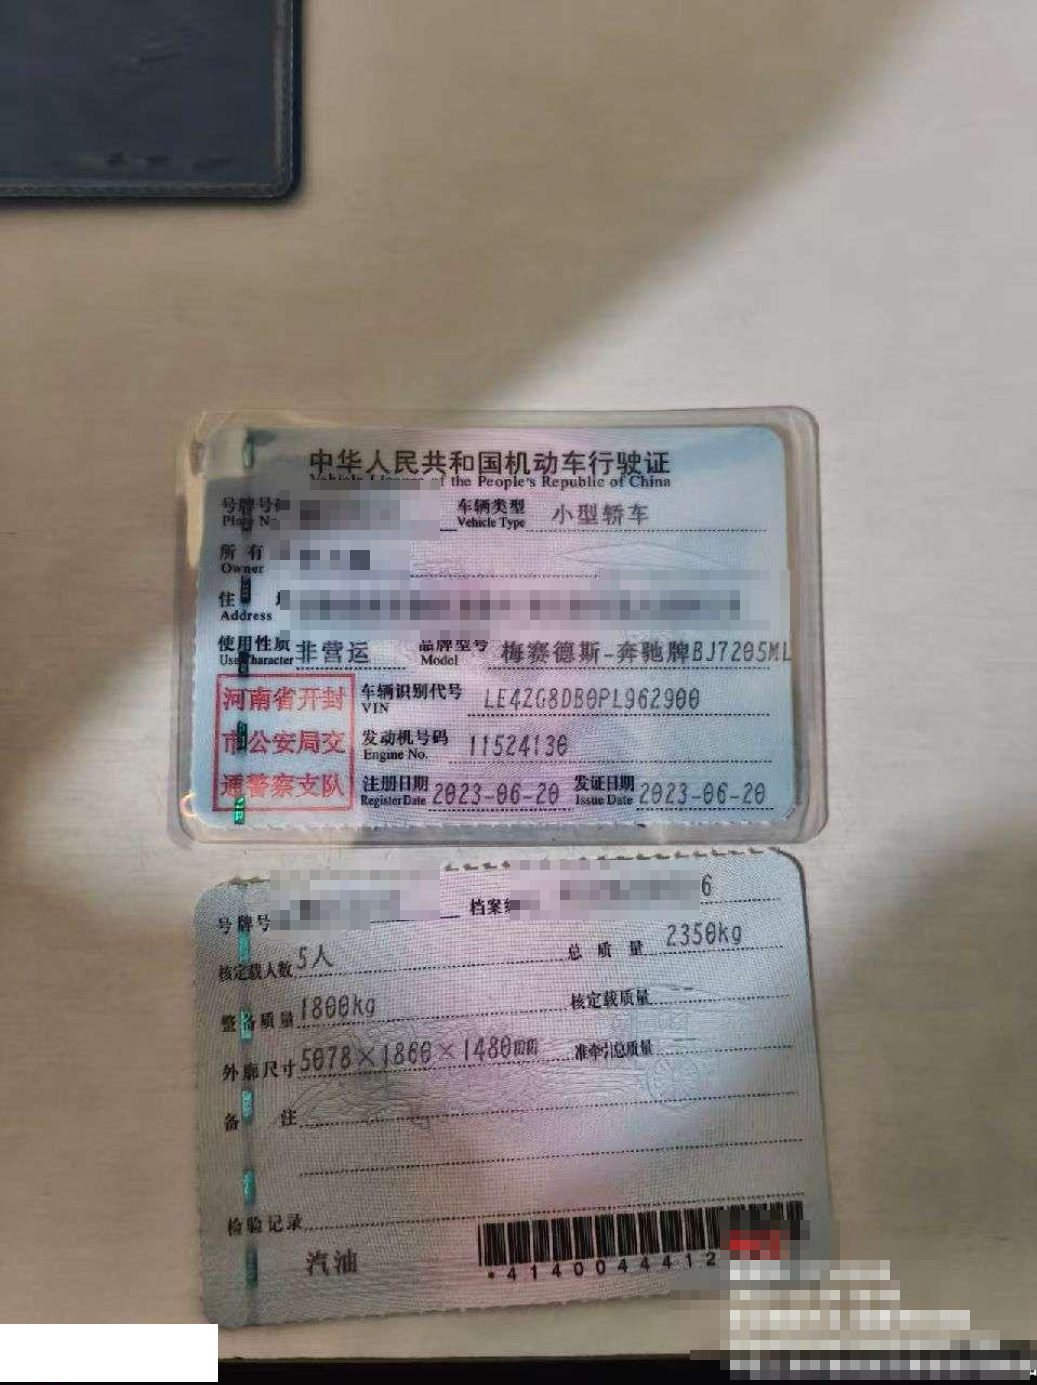 中华人民共和国机动车行驶证
Vehicle License of the People's Republic of China
号牌号码 车辆类型 小型轿车
Plate No. Vehicle Type
所有
Owner
住
Address
使用性质 非营运 品牌型号 梅赛德斯-奔驰牌BJ7205ML
Use Character Model
河南省开封
市公安局交
通警察支队
车辆识别代号 LE4ZG8DB0PL962900
VIN
发动机号码 11524130
Engine No.
注册日期 2023-06-20 发证日期 2023-06-20
Register Date Issue Date
号牌号 档案编 6
核定载人数 5人 总质量 2350kg
整备质量 1800kg 核定载质量
外廓尺寸 5078×1860×1480mm 准牵引总质量
备注
检验记录
汽油
*4140044412